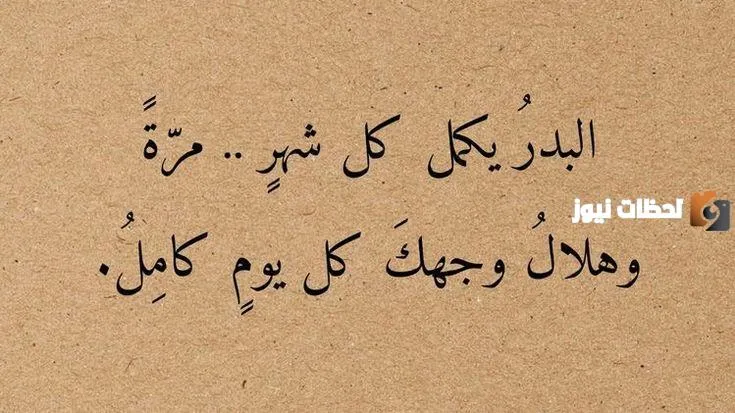 البدرُ يكمل كل شهرٍ .. مرّةً
لحظات نيوز
وهلالُ وجهكَ كل يومٍ كامِلُ.